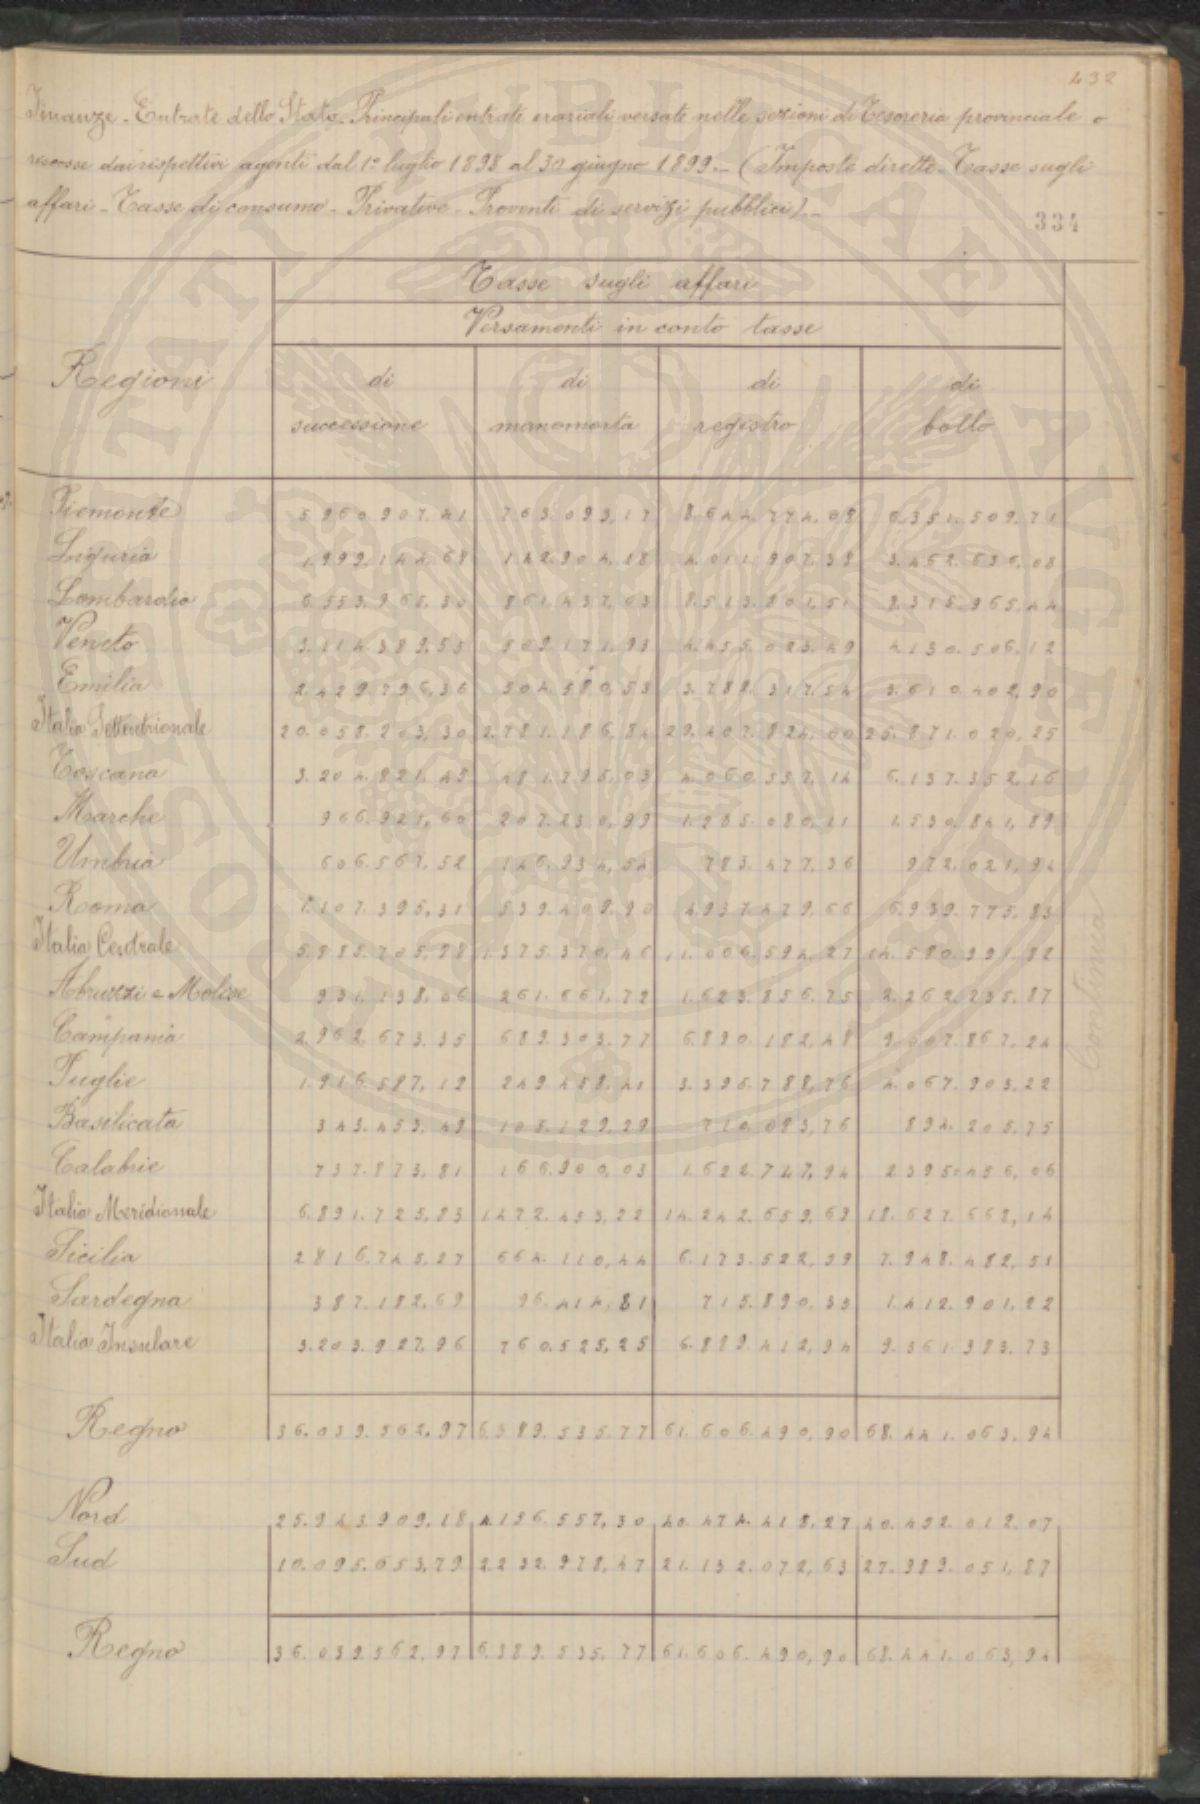 432
Finanze - Entrate dello Stato - Principali entrate erariali versate nelle sezioni di Tesoreria provinciale o
riscosse dai rispettivi agenti dal 1° luglio 1898 al 30 giugno 1899. - (Imposte dirette - Tasse sugli
affari - Tasse di consumo - Privative - Proventi di servizi pubblici). -
334
Tasse sugli affari
Versamenti in conto tasse
Regioni di successione di manomorta di registro di bollo
Piemonte 5.960.907,41 763.093,17 8.644.774,08 6.351.509,71
Liguria 1.999.144,68 142.904,18 4.011.907,38 3.462.636,08
Lombardia 6.553.965,30 861.437,03 8.513.801,51 8.315.965,44
Veneto 3.114.389,55 509.171,93 4.455.023,49 4.130.506,12
Emilia 2.429.796,36 504.580,53 3.782.317,54 3.610.402,90
Italia Settentrionale 20.058.203,30 2.781.186,84 29.407.824,00 25.871.020,25
Toscana 3.204.821,45 481.795,03 4.060.557,14 6.137.352,16
Marche 966.921,60 207.230,99 1.285.080,11 1.530.841,89
Umbria 606.567,52 146.934,54 783.477,36 972.021,94
Roma 1.107.395,31 539.409,90 4.937.479,66 6.939.775,83
Italia Centrale 5.885.705,88 1.375.370,46 11.066.594,27 14.580.991,82
Abruzzi e Molise 931.138,06 261.661,72 1.623.856,75 2.262.235,87
Campania 2.962.673,35 689.303,77 6.890.182,48 9.007.867,24
Puglie 1.916.587,12 249.458,41 3.395.788,76 4.067.903,22
Basilicata 343.453,49 105.129,29 710.083,76 894.205,75
Calabrie 737.873,81 166.900,03 1.622.747,94 2.395.456,06
Italia Meridionale 6.891.725,83 1.472.453,22 14.242.659,69 18.627.668,14
Sicilia 2.816.745,27 664.110,44 6.173.522,59 7.948.482,51
Sardegna 387.182,69 96.414,81 715.890,35 1.412.901,22
Italia Insulare 3.203.927,96 760.525,25 6.889.412,94 9.361.383,73
Regno 36.039.562,97 6.389.535,77 61.606.490,90 68.441.063,94
Nord 25.943.909,18 4.156.557,30 40.474.418,27 40.452.012,07
Sud 10.095.653,79 2.232.978,47 21.132.072,63 27.989.051,87
Regno 36.039.562,97 6.389.535,77 61.606.490,90 68.441.063,94
Continua